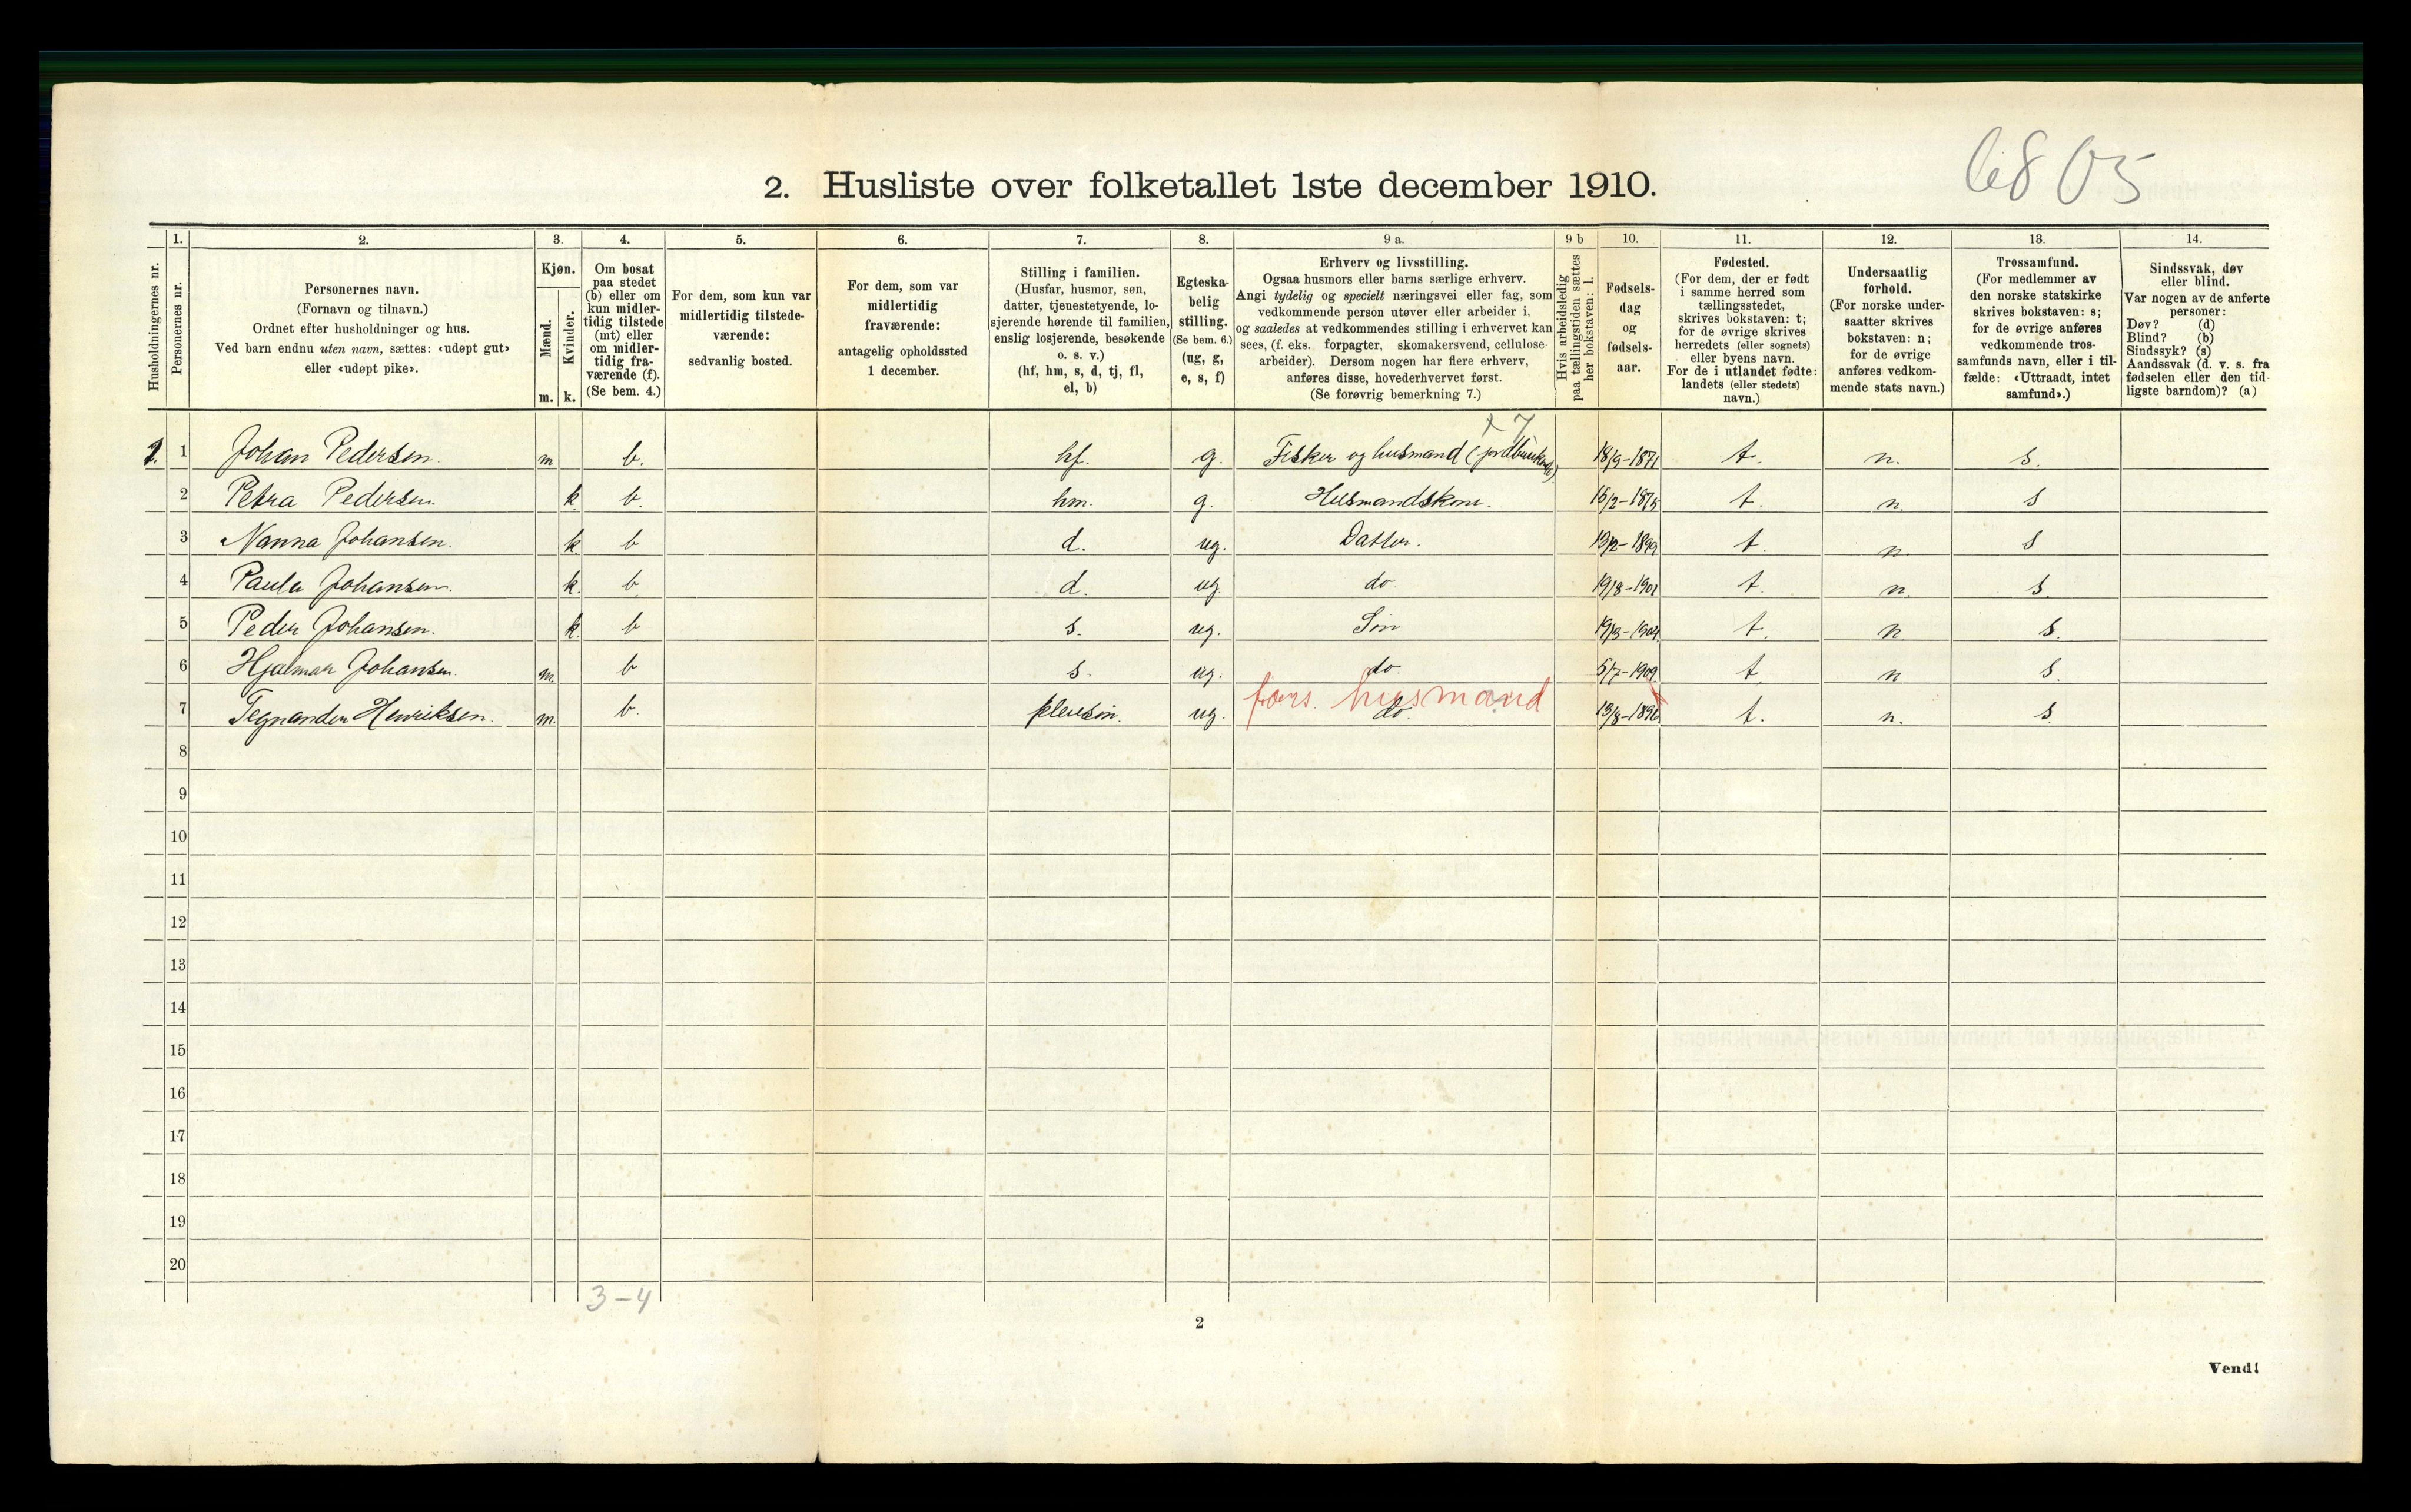 6805
2. Husliste over folketallet 1ste december 1910.
1. 2. 3. 4. 5. 6. 7. 8. 9 a. 9 b 10. 11. 12. 13. 14.
Husholdningernes nr.
Personernes nr.
Personernes navn.
(Fornavn og tilnavn.)
Ordnet efter husholdninger og hus.
Ved barn endnu uten navn, sættes: «udøpt gut»
eller «udøpt pike».
Kjøn.
Mænd.
Kvinder.
m. k.
Om bosat
paa stedet
(b) eller om
kun midler-
tidig tilstede
(mt) eller
om midler-
tidig fra-
værende (f).
(Se bem. 4.)
For dem, som kun var
midlertidig tilstede-
værende:
sedvanlig bosted.
For dem, som var
midlertidig
fraværende:
antagelig opholdssted
1 december.
Stilling i familien.
(Husfar, husmor, søn,
datter, tjenestetyende, lo-
sjerende hørende til familien,
enslig losjerende, besøkende
o. s. v.)
(hf, hm, s, d, tj, fl,
el, b)
Egteska-
belig
stilling.
(Se bem. 6.)
(ug, g,
e, s, f)
Erhverv og livsstilling.
Ogsaa husmors eller barns særlige erhverv.
Angi tydelig og specielt næringsvei eller fag, som
vedkommende person utøver eller arbeider i,
og saaledes at vedkommendes stilling i erhvervet kan
sees, (f. eks. forpagter, skomakersvend, cellulose-
arbeider). Dersom nogen har flere erhverv,
anføres disse, hovederhvervet først.
(Se forøvrig bemerkning 7.)
Hvis arbeidsledig
paa tællingstiden sættes
her bokstaven: l.
Fødsels-
dag
og
fødsels-
aar.
Fødested.
(For dem, der er født
i samme herred som
tællingsstedet,
skrives bokstaven: t;
for de øvrige skrives
herredets (eller sognets)
eller byens navn.
For de i utlandet fødte:
landets (eller stedets)
navn.)
Undersaatlig
forhold.
(For norske under-
saatter skrives
bokstaven: n;
for de øvrige
anføres vedkom-
mende stats navn.)
Trossamfund.
(For medlemmer av
den norske statskirke
skrives bokstaven: s;
for de øvrige anføres
vedkommende tros-
samfunds navn, eller i til-
fælde: «Uttraadt, intet
samfund».)
Sindssvak, døv
eller blind.
Var nogen av de anførte
personer:
Døv? (d)
Blind? (b)
Sindssyk? (s)
Aandssvak (d. v. s. fra
fødselen eller den tid-
ligste barndom)? (a)
+ 7
1. 1 Johan Pedersen. m b. hf. g. Fisker og husmand (jordbrukende) 18/9-1871 t. n. s.
2 Petra Pedersen. k b. hm. g. Husmandskone. 15/2-1875 t. n. s
3 Nanna Johansen. k. b d. ug. Datter. 13/2-1899 t. n s
4 Paula Johansen. k. b d. ug. do 19/8-1901 t. n. s.
5 Peder Johansen. k. b s. ug. Søn t. n s.
6 Hjalmar Johansen. m. b s. ug. do 5/7-1909 t. n s.
fors. husmand
7 Tegnander Henriksen. m. b. pleiesøn. ug. do. 13/8-1896 t. n. s
8
9
10
11
12
13
14
15
16
17
18
19
20
3-4
2
Vend!